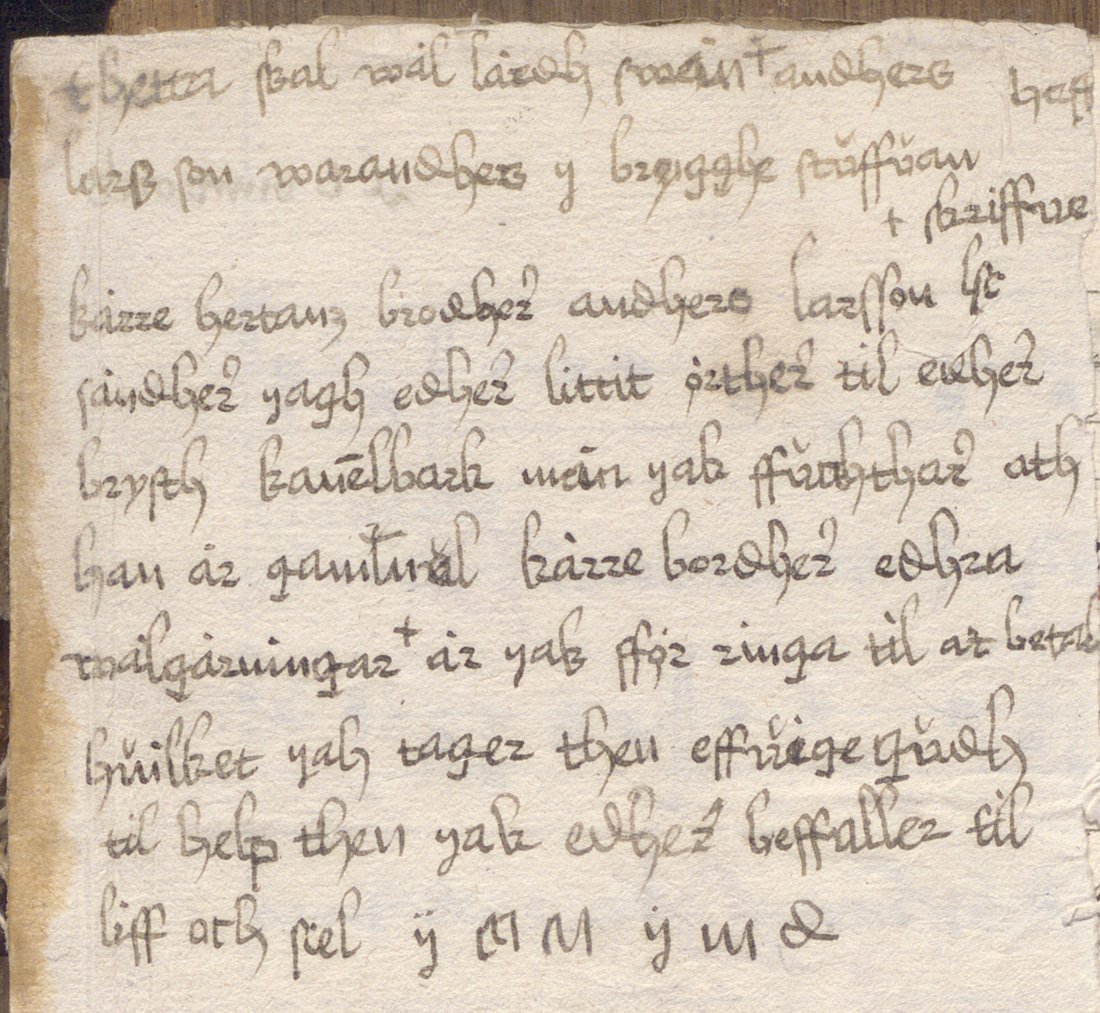 thetta skal wäl lärdh swän + andhers
lars son warandhes y brygghe stŭffŭan
+ skriffue
kärre hertanz brodher andhers larsson
sändher yagh edher littit örther til edher
brysth kanelbark män yak ffrŭchthar ath
han är gam̄mal kärre bordher edhra
wälgärningar + är yak ffor ringa til at betal
hŭilket yah tager then effŭige gŭdh
til help then yak edher beffaller til
liff och siel ÿ M M ÿ m d